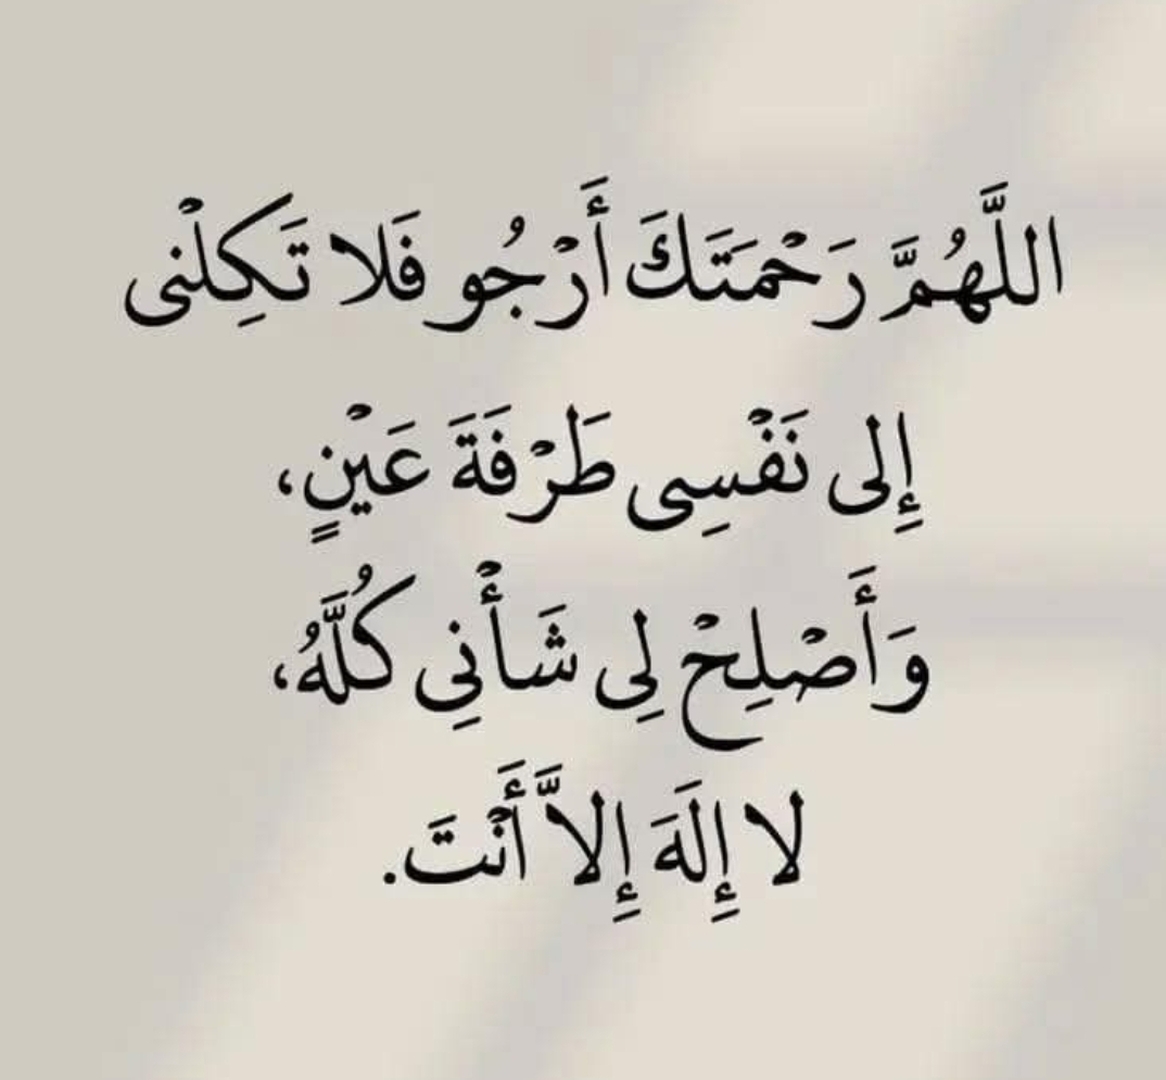 اللَّهُمَّ رَحْمَتَكَ أَرْجُو فَلا تَكِلْنى
إِلى نَفْسِى طَرْفَةَ عَيْنٍ،
وَأَصْلِحْ لِى شَأْنِى كُلَّهُ،
لا إِلَهَ إِلاَّ أَنْتَ.